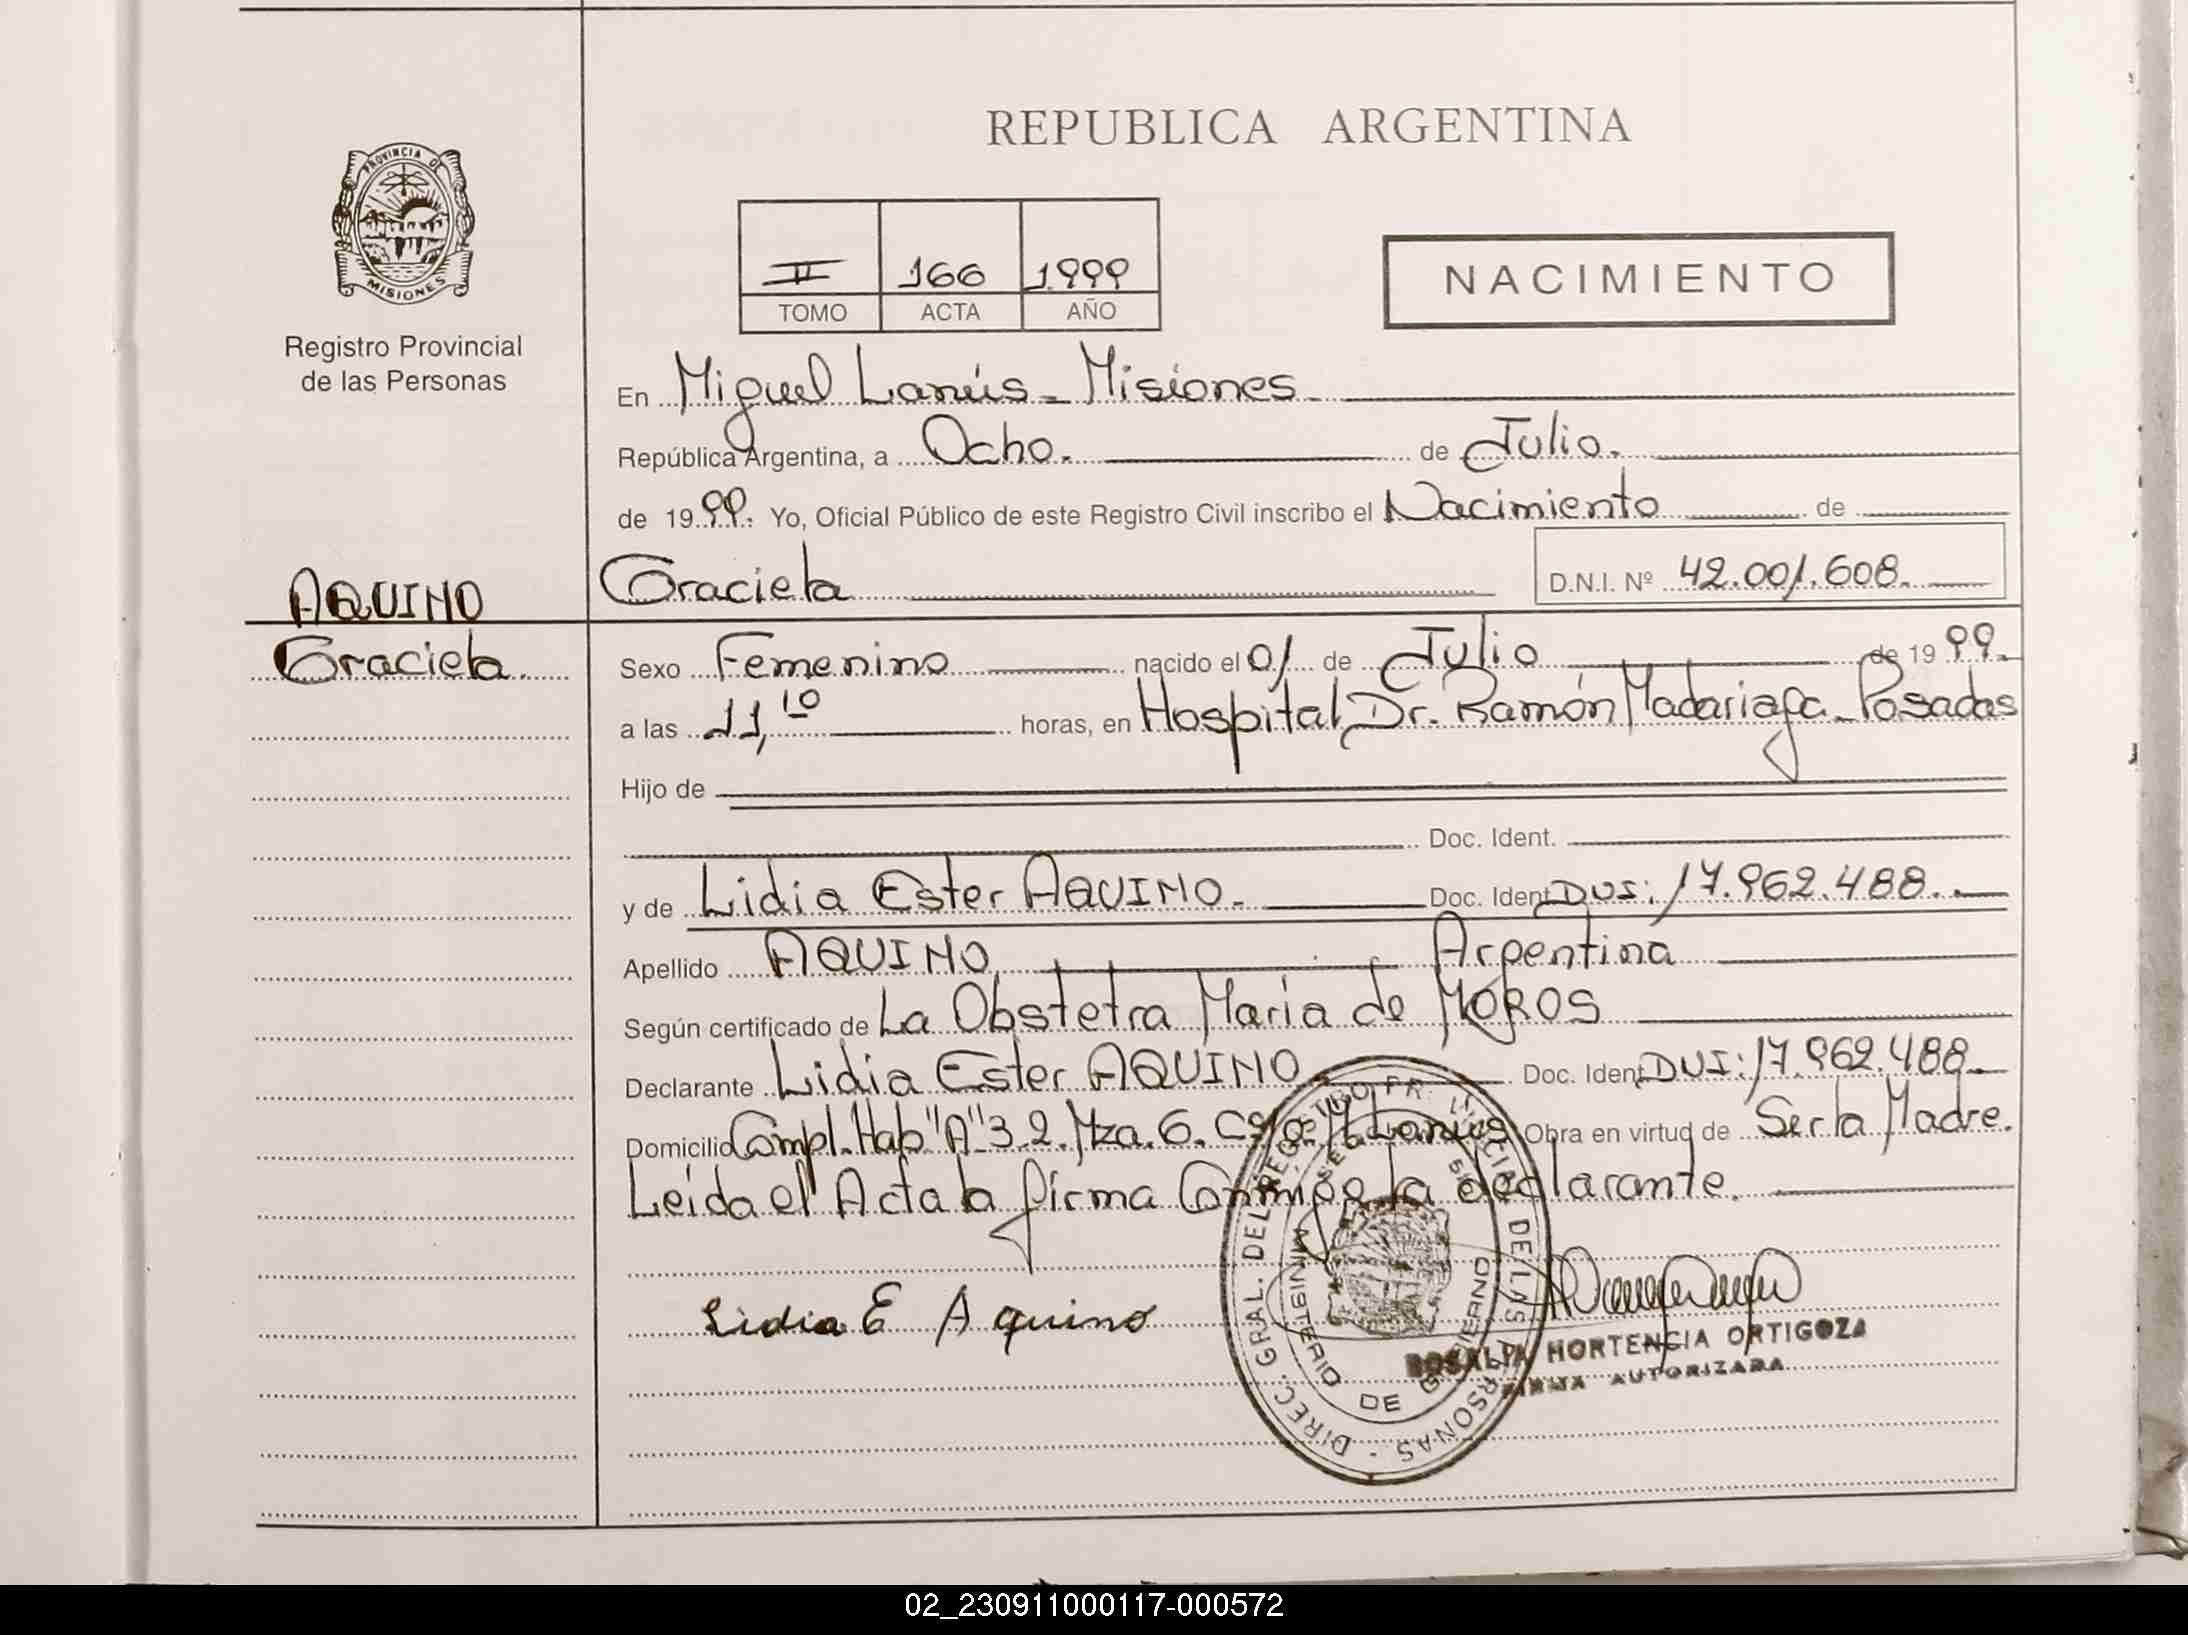 REPUBLICA ARGENTINA
PROVINCIA DE
MISIONES
Registro Provincial
de las Personas
II 166 1.999
TOMO ACTA AÑO
NACIMIENTO
En Miguel Lanús - Misiones
República Argentina, a Ocho. de Julio.
de 1999. Yo, Oficial Público de este Registro Civil inscribo el Nacimiento de
AQUINO
Graciela
Graciela D.N.I. Nº 42.001.608.
Sexo Femenino nacido el 01 de Julio de 1999.
a las 11,10 horas, en Hospital Dr. Ramón Madariaga - Posadas
Hijo de
Doc. Ident.
y de Lidia Ester AQUINO. Doc. Ident. DUI: 17.962.488.
Apellido AQUINO Argentina
Según certificado de La Obstetra Maria de MOROS
Declarante Lidia Ester AQUINO Doc. Ident. DUI: 17.962.488
Domicilio Compl. Hab "A" 3.2. Mza. 6. Lanús Obra en virtud de Ser la Madre.
Leída el Acta la firma Conmigo la declarante.
Lidia E Aquino
DIREC. GRAL. DEL REGISTRO PROVINCIAL DE LAS PERSONAS
MINISTERIO DE GOBIERNO
ROSALIA HORTENCIA ORTIGOZA
FIRMA AUTORIZADA
02_230911000117-000572